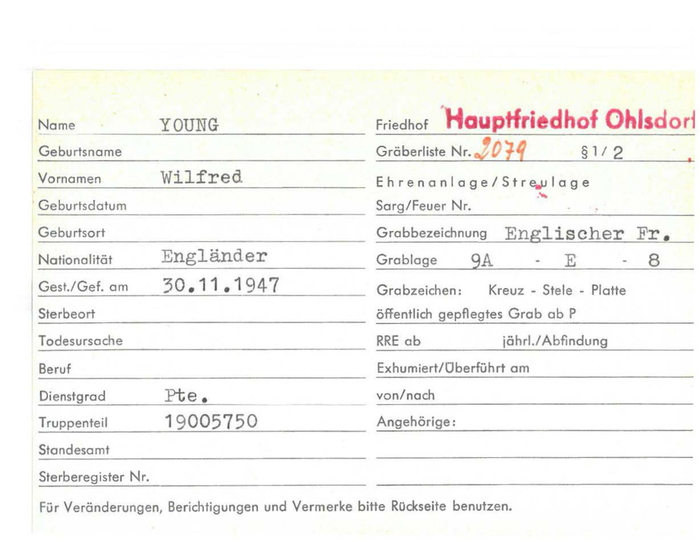 Name YOUNG
Geburtsname
Vornamen Wilfred
Geburtsdatum
Geburtsort
Nationalität Engländer
Gest./Gef. am 30.11.1947
Sterbeort
Todesursache
Beruf
Dienstgrad Pte.
Truppenteil 19005750
Standesamt
Sterberegister Nr.
Friedhof Hauptfriedhof Ohlsdorf
Gräberliste Nr. 2079 §1/2
Ehrenanlage/Streulage
Sarg/Feuer Nr.
Grabbezeichnung Englischer Fr.
Grablage 9A - E - 8
Grabzeichen: Kreuz - Stele - Platte
öffentlich gepflegtes Grab ab P
RRE ab jährl./Abfindung
Exhumiert/Überführt am
von/nach
Angehörige:
Für Veränderungen, Berichtigungen und Vermerke bitte Rückseite benutzen.